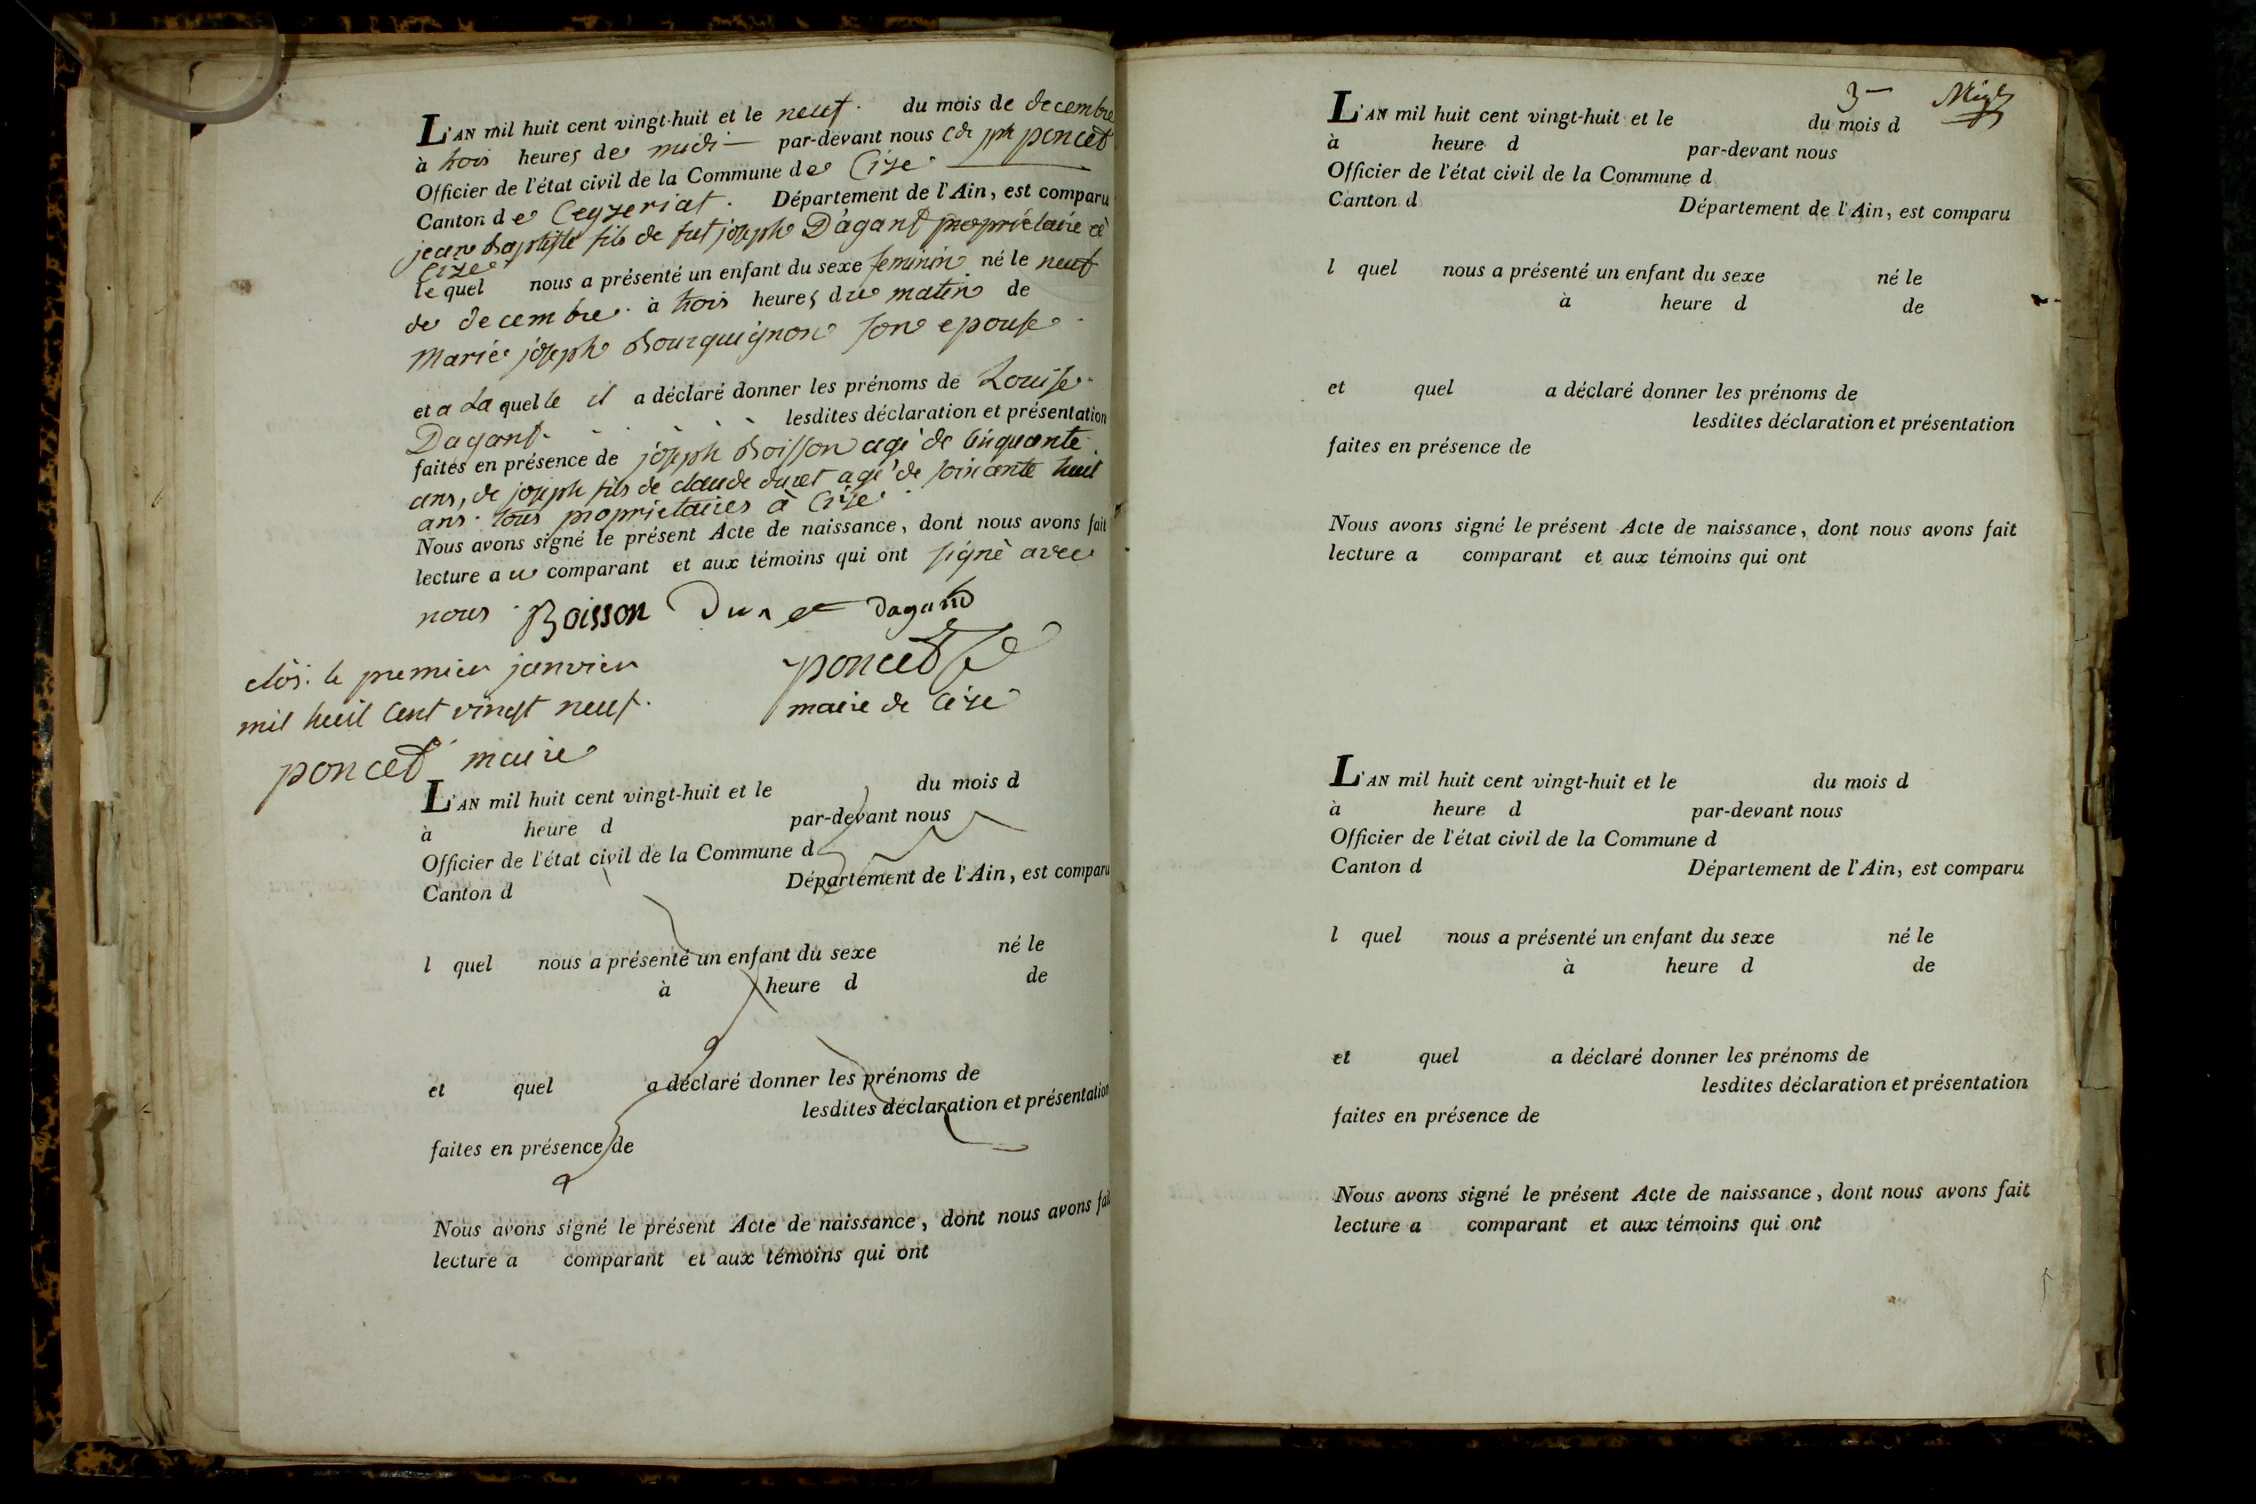 L'AN mil huit cent vingt-huit et le neuf. du mois de decembre
à trois heures de midi — par-devant nous Cde jph poncet
Officier de l'état civil de la Commune de Cize.
Canton de Ceyzeriat. Département de l'Ain, est comparu
jean baptiste fils de fut joseph Dagant propriétaire à
Cize
le quel nous a présenté un enfant du sexe feminin né le neuf
de decembre. à trois heures du matin de
Marie joseph Bourguignon son epouse.
et a La quelle il a déclaré donner les prénoms de Louise
lesdites déclaration et présentation
Dagant.
faites en présence de joseph Boisson agé de Cinquante
ans, de joseph fils de claude duret agé de soixante huit
ans. tous proprietaires à Cize.
Nous avons signé le présent Acte de naissance, dont nous avons fait
lecture au comparant et aux témoins qui ont signé avec
nous. Boisson Duret Dagand
poncet
maire de Cize
clos. le premier janvier
mil huit Cent vingt neuf.
poncet maire
L'AN mil huit cent vingt-huit et le du mois d
à heure d par-devant nous
Officier de l'état civil de la Commune d
Canton d Département de l'Ain, est comparu
l quel nous a présenté un enfant du sexe né le
à heure d de
et quel a déclaré donner les prénoms de
lesdites déclaration et présentation
faites en présence de
Nous avons signé le présent Acte de naissance, dont nous avons fait
lecture a comparant et aux témoins qui ont
3
L'AN mil huit cent vingt-huit et le du mois d
à heure d par-devant nous
Officier de l'état civil de la Commune d
Canton d Département de l'Ain, est comparu
l quel nous a présenté un enfant du sexe né le
à heure d de
et quel a déclaré donner les prénoms de
lesdites déclaration et présentation
faites en présence de
Nous avons signé le présent Acte de naissance, dont nous avons fait
lecture a comparant et aux témoins qui ont
L'AN mil huit cent vingt-huit et le du mois d
à heure d par-devant nous
Officier de l'état civil de la Commune d
Canton d Département de l'Ain, est comparu
l quel nous a présenté un enfant du sexe né le
à heure d de
et quel a déclaré donner les prénoms de
lesdites déclaration et présentation
faites en présence de
Nous avons signé le présent Acte de naissance, dont nous avons fait
lecture a comparant et aux témoins qui ont